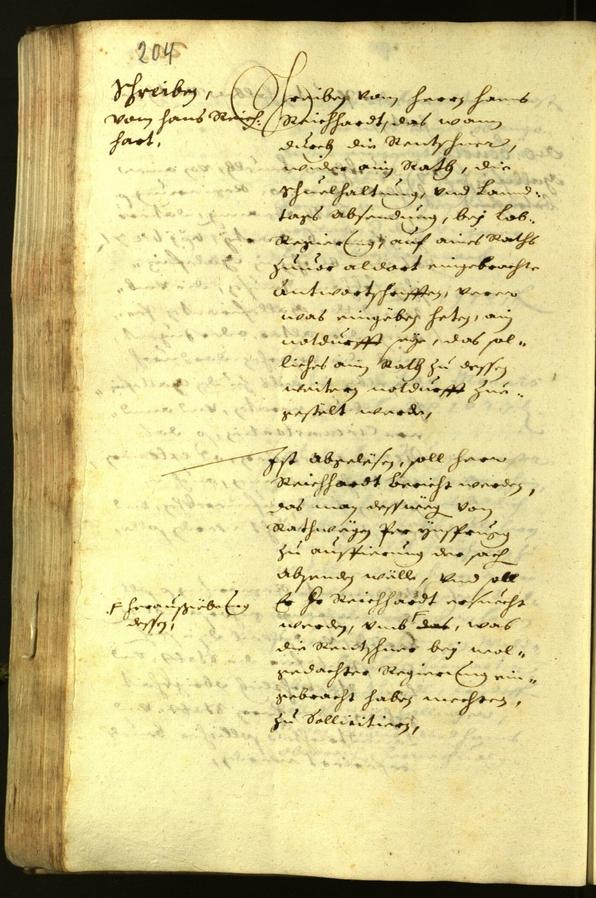 204
Schreiben,
vom Hans Reich:
hart,
Schreiben vom herrn Hanns
Reichhardt, das wann
durch die Rentschner,
wider ain Rath, die
Schuelhaltung, und Lannd:
tags absendung, bej Lob:
Regierung, auf aines Raths
zuuor aldort eingebrachte
Antwortschrifften, verer
was eingeben heten, ain
notdurfft seye, das sol„
liches ain Rath zu dessen
weitern notdurfft zue„
gestelt werde,
Ist abgelesen, soll herrn
Reichhardt bericht werden,
das man desswegen von
Rathswegen per Ynsprugg
zu ausfierung der sach
absenden wölle, und soll
Er Hr Reichhardt ersuecht
werden, umb das, was
F herausgebung
dessen,
die Rentschner bey wol„
gedachter Regierung ein„
gebracht haben mechten,
zu Sollicitiern,